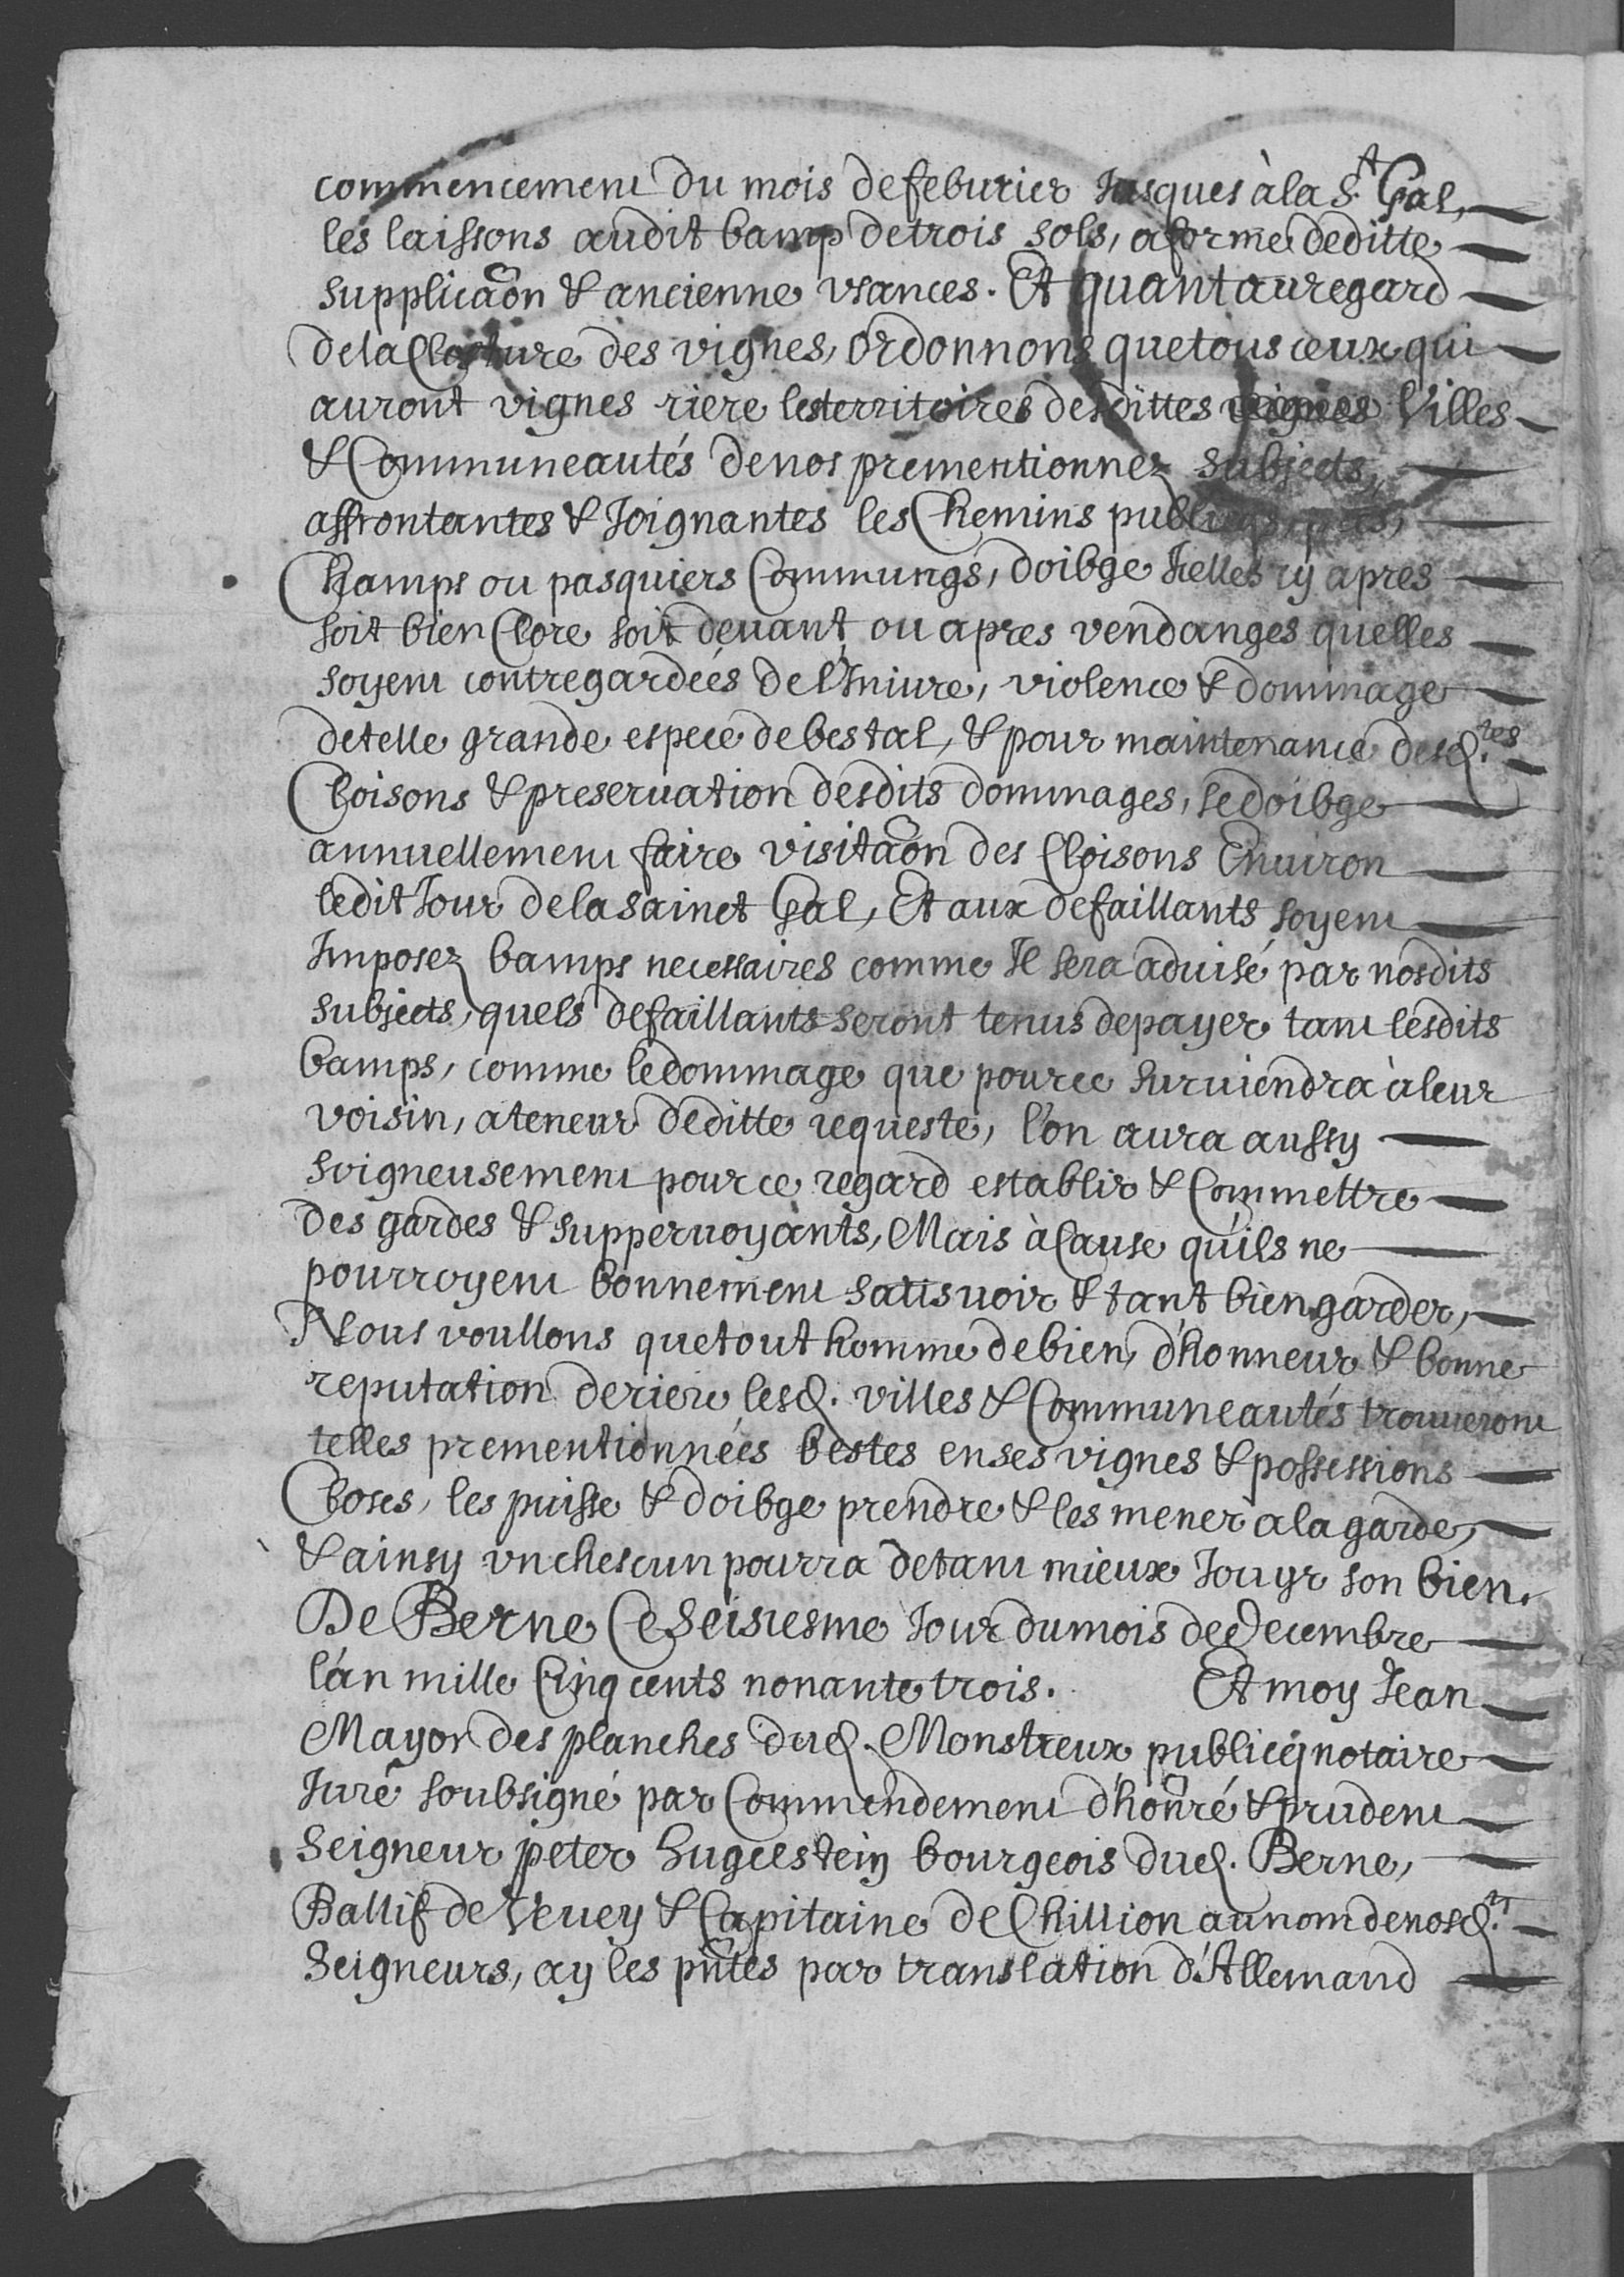 commencement du mois de feburier Jusques à la S.t Gal,
les laissons audit bamp de trois sols, a forme deditte
supplicãon & ancienne vsances. Et quant au regard
de la Closture des vignes, Ordonnons que tous ceux qui
auront vignes riere les territoires desdittes Villes
& Communeautés de nos prementionnez subjects,
affrontantes & Joignantes les Chemins publiqs,
Champs ou pasquiers Commungs, doibge Jcelles cy apres
soit bien Clore soit deuant ou apres vendanges quelles
soyent contregardées de l'Iniure, violence & dommage
de telle grande espece de bestal, & pour maintenance desd.tes
Cloisons & preseruation desdits dommages, se doibge
annuellement faire visitãon des Cloisons Enuiron
ledit Jour de la sainct Gal, Et aux defaillants soyent
Imposez bamps necessaires comme Il sera aduisé par nosdits
subjects, quels defaillants seront tenus de payer tant lesdits
bamps, comme le dommage que pource suruiendra à leur
voisin, a teneur deditte requeste, l'on aura aussy
soigneusement pource regard establir & Commettre
des gardes & supperuoyants, Mais à Cause qu'ils ne
pourroyent bonnement satisuoir & tant bien garder,
Nous voullons que tout homme de bien, d'honneur & bonne
reputation deriere lesd. villes & Communeautés trouueront
telles prementionnées bestes en ses vignes & possessions
Closes, les puisse & doibge prendre & les mener a la garde,
& ainsy vn chescun pourra de tant mieux Jouyr son bien.
De Berne Ce Seisiesme Jour du mois de Decembre
l'an mille Cinq cents nonante trois. Et moy Jean
Mayor des planches dud. Monstreux publicq notaire
Juré soubsigné par Commendement d'honr̃é & prudent
Seigneur peter Hugcestein bourgeois dud. Berne,
Ballif de Veuey & Capitaine de Chillion au nom de nosd.ts
Seigneurs, ay les pñtes par translation d'Allemand